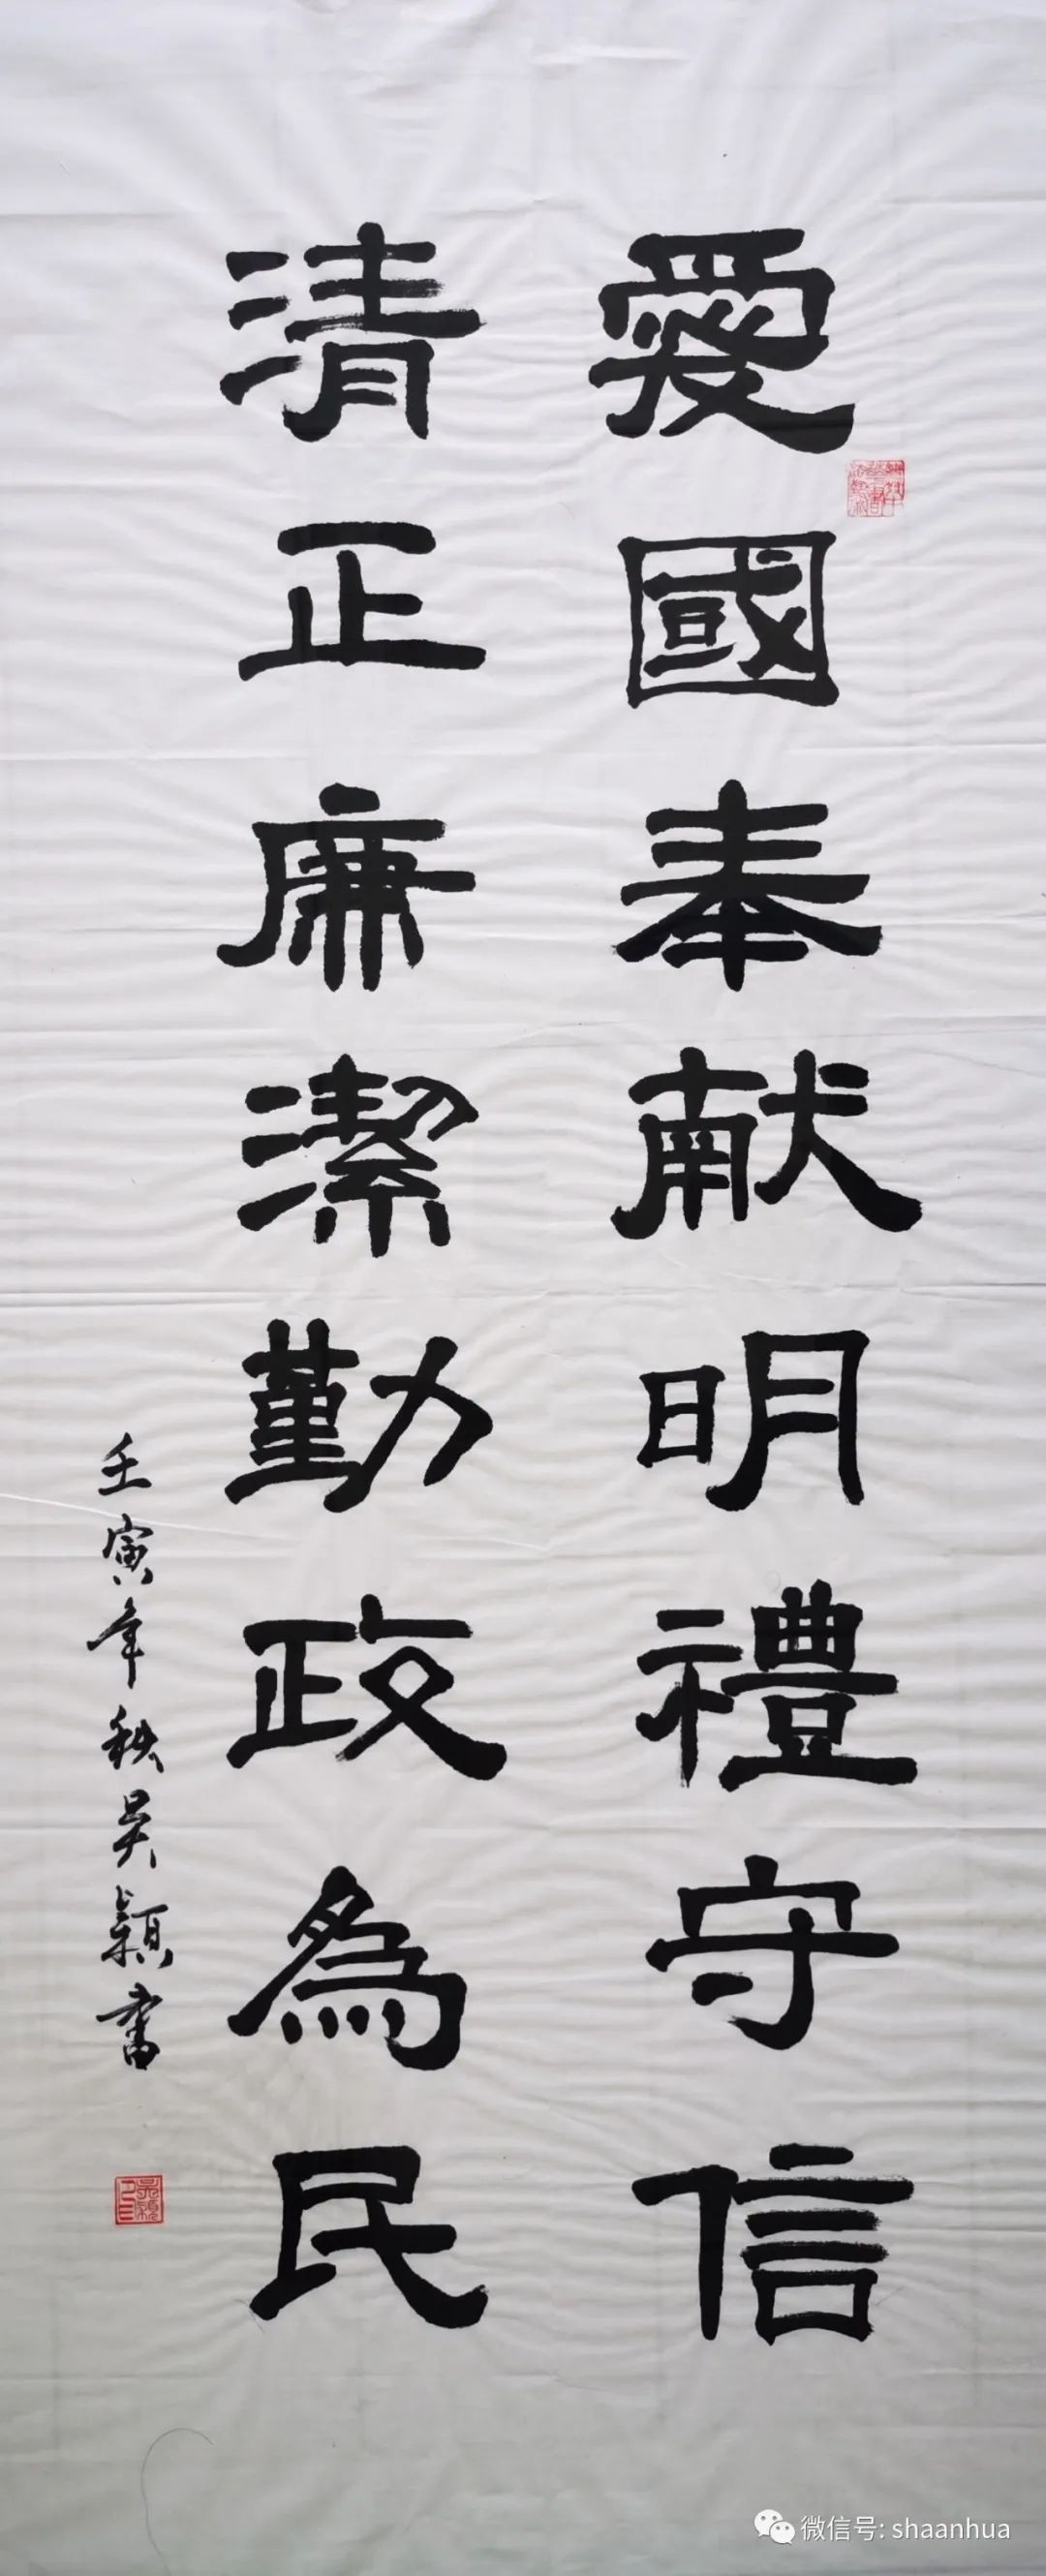 愛國奉献明禮守信
清正廉潔勤政為民
壬寅年秋吴穎書
微信号: shaanhua